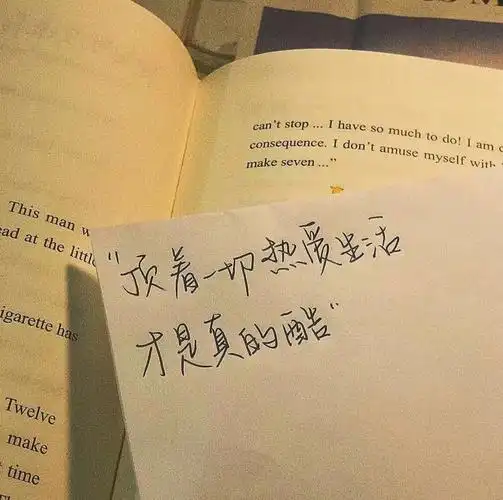 can't stop ... I have so much to do! I am
consequence. I don't amuse myself with
make seven ..."
This man
at the little
igarette has
Twelve
make
time
"顶着一切热爱生活
才是真的酷"